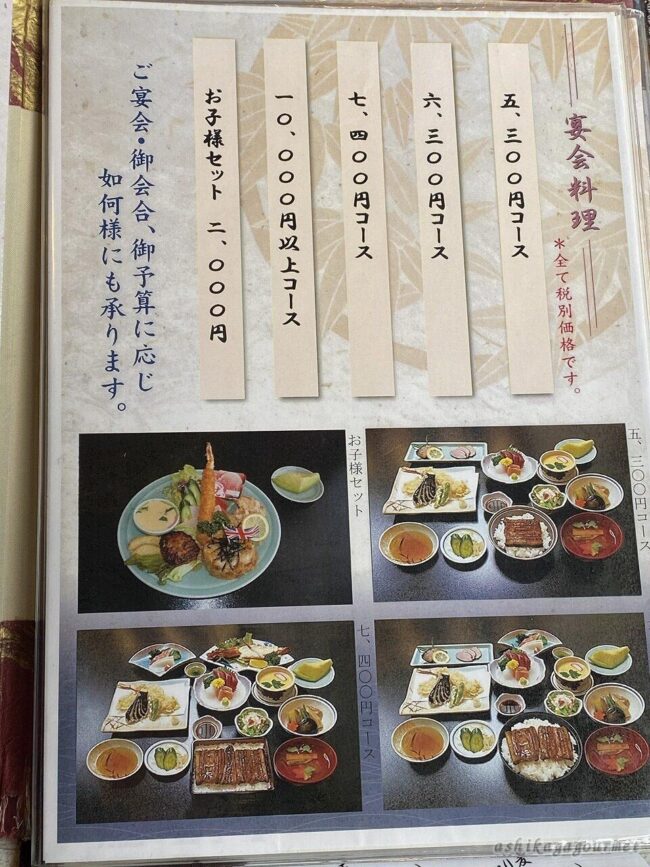 宴会料理
＊全て税別価格です。
五、三〇〇円コース
六、三〇〇円コース
七、四〇〇円コース
一〇、〇〇〇円以上コース
お子様セット 二、〇〇〇円
ご宴会・御会合、御予算に応じ
如何様にも承ります。
五、三〇〇円コース
お子様セット
七、四〇〇円コース
ashikagagourmet